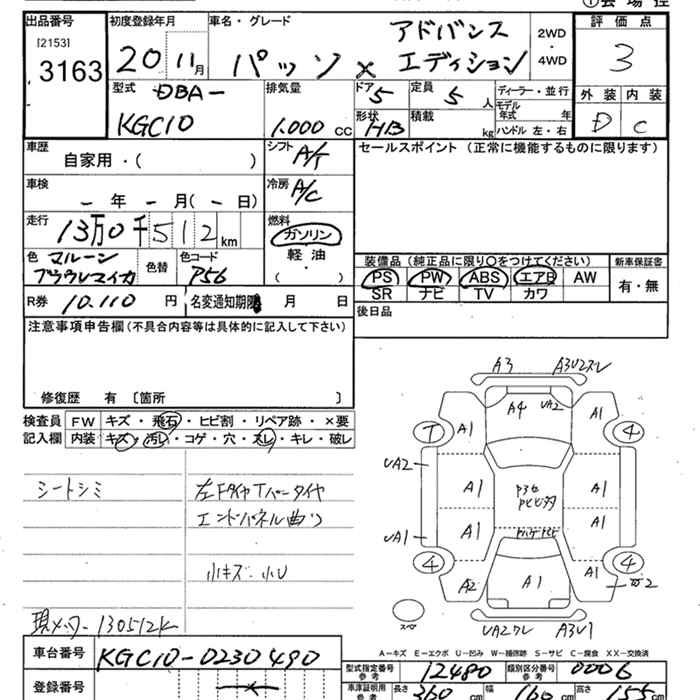 出品番号
[2153]
3163
初度登録年月
20 11月
車名・グレード
パッソ × アドバンス エディション
2WD・4WD
評価点
3
外装 内装
D C
型式
DBA-
KGC10
排気量
1.000 cc
ドア 5
形状 HB
定員 5 人
積載 kg
ディーラー・並行
モデル年式 年
ハンドル 左・右
車歴
自家用・( )
シフト A/T
セールスポイント(正常に機能するものに限ります)
車検
- 年 - 月(- 日)
冷房 A/C
走行
13万0千512km
燃料
ガソリン
軽油
・
( )
色 マルーン
ブラウンマイカ
色替
色コード
P56
装備品(純正品に限り○をつけてください)
新車保証書
PS PW ABS エアB AW
SR ナビ TV カワ
有・無
R券 10.110 円
名変通知期限 月 日
後日品
注意事項申告欄(不具合内容等は具体的に記入して下さい)
修復歴 有〔箇所 〕
検査員記入欄
FW キズ・飛石・ヒビ割・リペア跡・×要
内装 キズ・汚レ・コゲ・穴・スレ・キレ・破レ
シートシミ
左Fタイヤ Tパータイヤ
エンドパネル曲り
小キズ・小U
現メーター 130512k
A3 A3U2スレ
A4 UA2
A1 A1
T 4
UA2
A1 A1
A1 A1
UA1
4 4
A2 A1 A1
スペア
UA2 A3U1
A-キズ E-エクボ U-凹み W-補修跡 S-サビ C-腐食 XX-交換済
車台番号
KGC10-0230490
登録番号
型式指定番号 参考
12480
類別区分番号 参考
0006
車庫証明用 参考
長さ 360 cm
幅 166 cm
高さ 155 cm